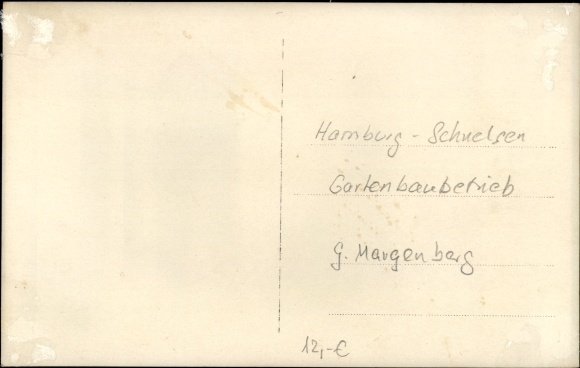 Hamburg - Schnelsen
Gartenbaubetrieb
G. Margenberg
12,-€